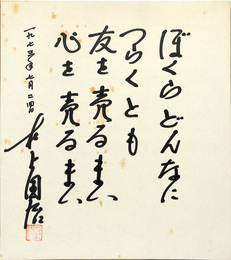 ぼくらどんなに
つらくとも
友を売るまい
心を売るまい
一九七三年七月二四日